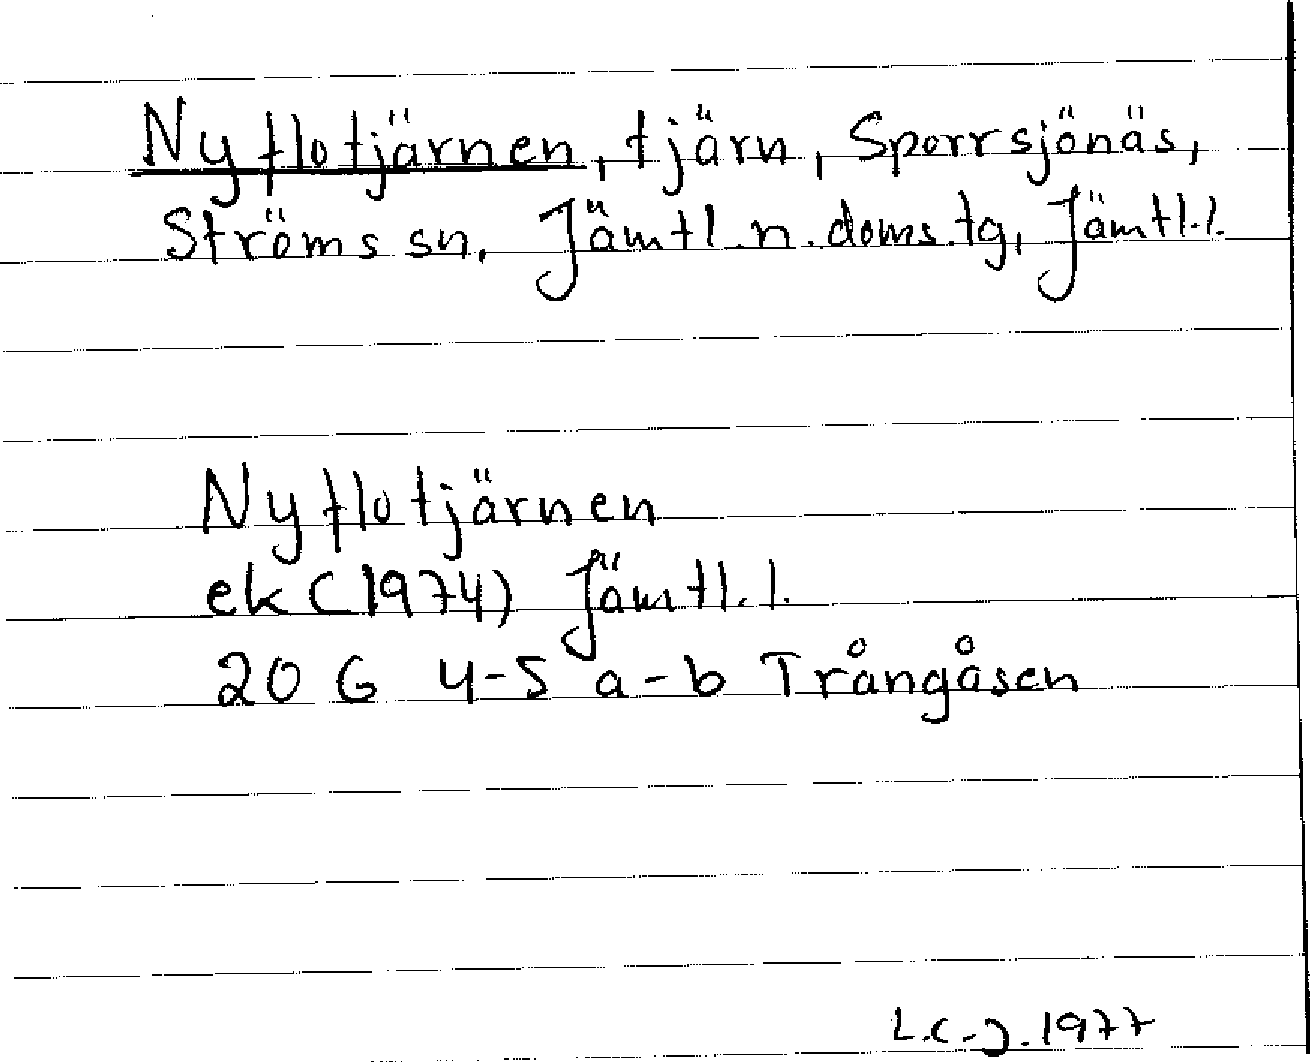 Nyflotjärnen, tjärn, Sporrsjönäs,
Ströms sn, Jämtl. n. doms. tg, Jämtl. l.
Nyflotjärnen
ek (1974) Jämtl. l.
20 G 4-5 a-b Trångåsen
L.C-J. 1977